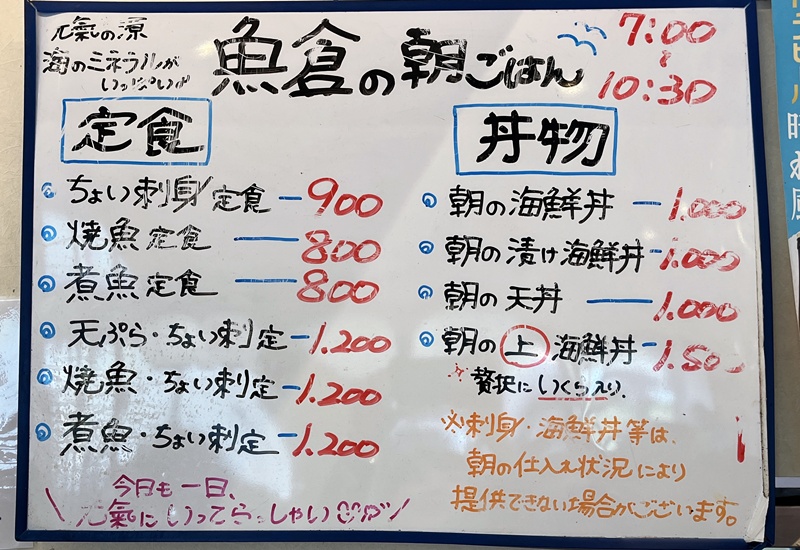 元氣の源
海のミネラルが
いっぱい♂
魚倉の朝ごはん
7:00
~
10:30
定食
ちょい刺身定食 ー 900
焼魚定食 ー 800
煮魚定食 ー 800
天ぷら・ちょい刺定 ー 1.200
焼魚・ちょい刺定 ー 1.200
煮魚・ちょい刺定 ー 1.200
今日も一日、
元氣にいってらっしゃい
丼物
朝の海鮮丼 ー 1.000
朝の漬け海鮮丼 ー 1.000
朝の天丼 ー 1.000
朝の上海鮮丼 ー 1.500
*贅沢にいくら入り.
※刺身・海鮮丼等は、
朝の仕入れ状況により
提供できない場合がございます。